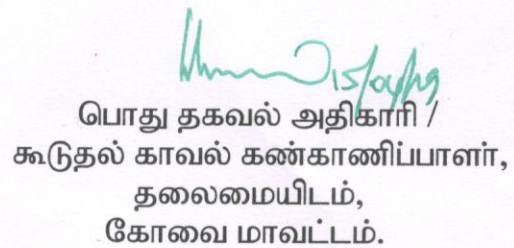 15/04/19
பொது தகவல் அதிகாரி /
கூடுதல் காவல் கண்காணிப்பாளர்,
தலைமையிடம்,
கோவை மாவட்டம்.